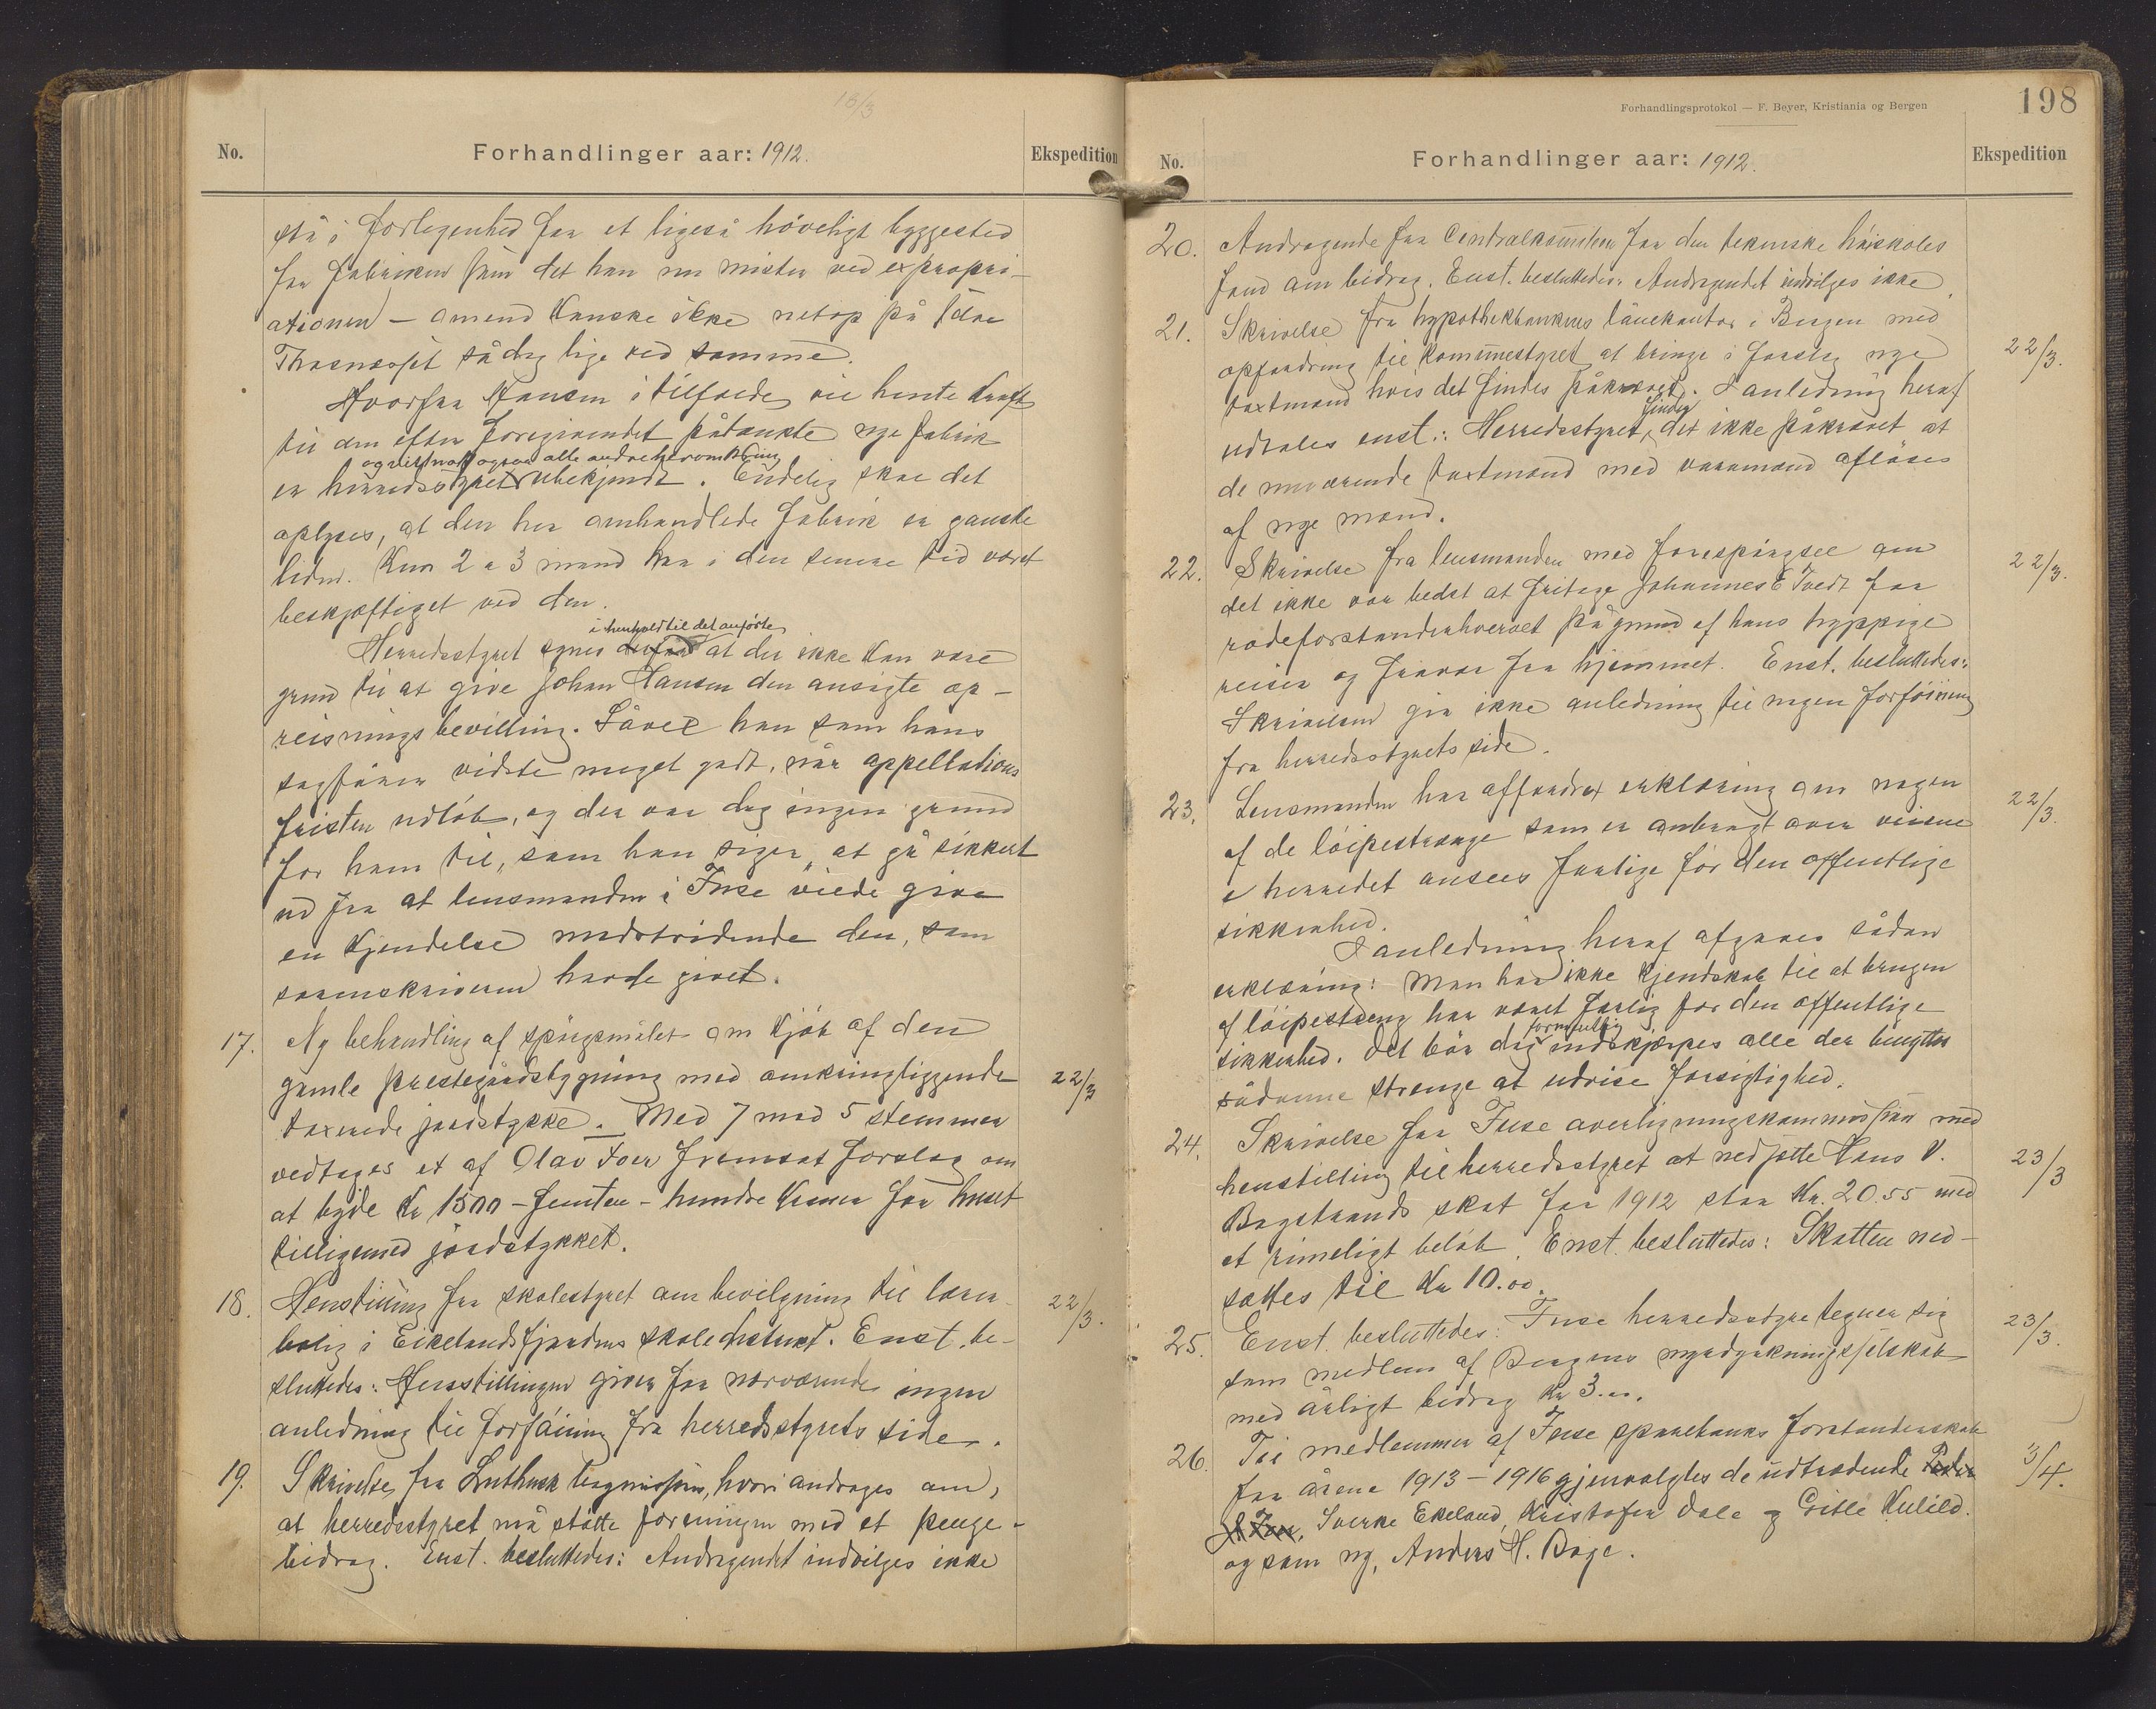 18/3
No. Forhandlinger aar: 1912. Ekspedition
stå i forlegenhed for et ligeså høveligt byggested
for fabriken som det han nu mister ved expropri-
ationen – omend kanske ikke netop på
så dog lige ved samme.
Hvorfra Hansen i tilfælde vil hente kraft
til den efter foregivendet påtænkte nye fabrik
og vistnok ogsaa alle andre heromkring
er herredsstyret ubekjendt. Endelig skal det
oplyses, at den her omhandlede fabrik er ganske
liden. Kun 2 a 3 mand har i den senere tid været
beskjæftiget ved den.
i henhold til det anførte
Herredsstyret synes derfor at der ikke kan være
grund til at give Johan Hansen den ansøgte op-
reisningsbevilling. Såvel han som hans
sagfører vidste meget godt, når appellations
fristen udløb, og der var dog ingen grund
for ham til, som han siger, at gå sikkert
ud fra at lensmanden i Fuse vilde give
en kjendelse modstridende den, som
sorenskriveren havde givet.
17. Ny behandling af spørgsmålet om kjøb af den
gamle prestegårdsbygning med omkringliggende 22/3
taxerede jordstykke. Med 7 mod 5 stemmer
vedtages et af Olav Koer fremsat forslag om
at byde Kr 1500 – femten – hundre kroner for huset
tilligemed jordstykket.
18. Henstilling fra skolestyret om bevilgning til lærer- 22/3.
bolig i Eikelandsfjordens skoledistrikt. Enst. be-
sluttedes: Henstillingen giver for nærværende ingen
anledning til forføining fra herredsstyrets side.
19. Skrivelse fra Luthersk hvori andrages om,
at herredsstyret må støtte foreningen med et penge-
bidrag. Enst. besluttedes: Andragendet indvilges ikke
Forhandlingsprotokol — F. Beyer, Kristiania og Bergen
198
No. Forhandlinger aar: 1912. Ekspedition
20. Andragende fra Centralkomiteen for den tekniske høiskoles
fond om bidrag. Enst. besluttedes: Andragendet indvilges ikke.
21. Skrivelse fra hypothekbankens lånekontor i Bergen med
opfordring til kommunestyret at bringe i forslag nye 22/3.
taxtmænd hvis det findes påkrævet. I anledning heraf
udtales enst.: Herredsstyret finder det ikke påkrævet at
de nuværende taxtmænd med varamænd afløses
af nye mænd.
22. Skrivelse fra lensmanden med forespørgsel om 22/3.
det ikke var bedst at fritage Johannes E Tvedt for
rodeforstanderhvervet på grund af hans hyppige
reiser og fravær fra hjemmet. Enst. besluttedes:
Skrivelsen gir ikke anledning til nogen forføining
fra herredsstyrets side.
23. Lensmanden har affordret erklæring om nogen 22/3.
af de løipestrænge som er anbragt over veiene
i herredet ansees farlige for den offentlige
sikkerhed.
I anledning heraf afgaves sådan
erklæring: Man har ikke kjendskab til at brugen
af løipestreng har været farlig for den offentlige
sikkerhed. Det bør dog formentlig indskjærpes alle der benytter
sådanne strenge at udvise forsigtighed.
24. Skrivelse fra Fuse overligningskommission med
henstilling til herredsstyret at nedsætte Hans V. 23/3
Bogstrands skat for 1912 stor Kr. 20.55 med
et rimeligt beløb. Enst. besluttedes: Skatten ned-
sættes til Kr 10.00.
25. Enst. besluttedes: Fuse herredsstyre tegner sig 23/3.
som medlem af Bergens myrdyrkningsselskab
med årligt bidrag Kr 3.00.
26. Til medlemmer af Fuse sparebanks forstanderskab
for årene 1913 – 1916 gjenvalgtes de udtrædende Peder 3/4.
Sverke Ekeland, Kristofer Dale og Gitle Kulild.
og som ny, Anders H. Boge.